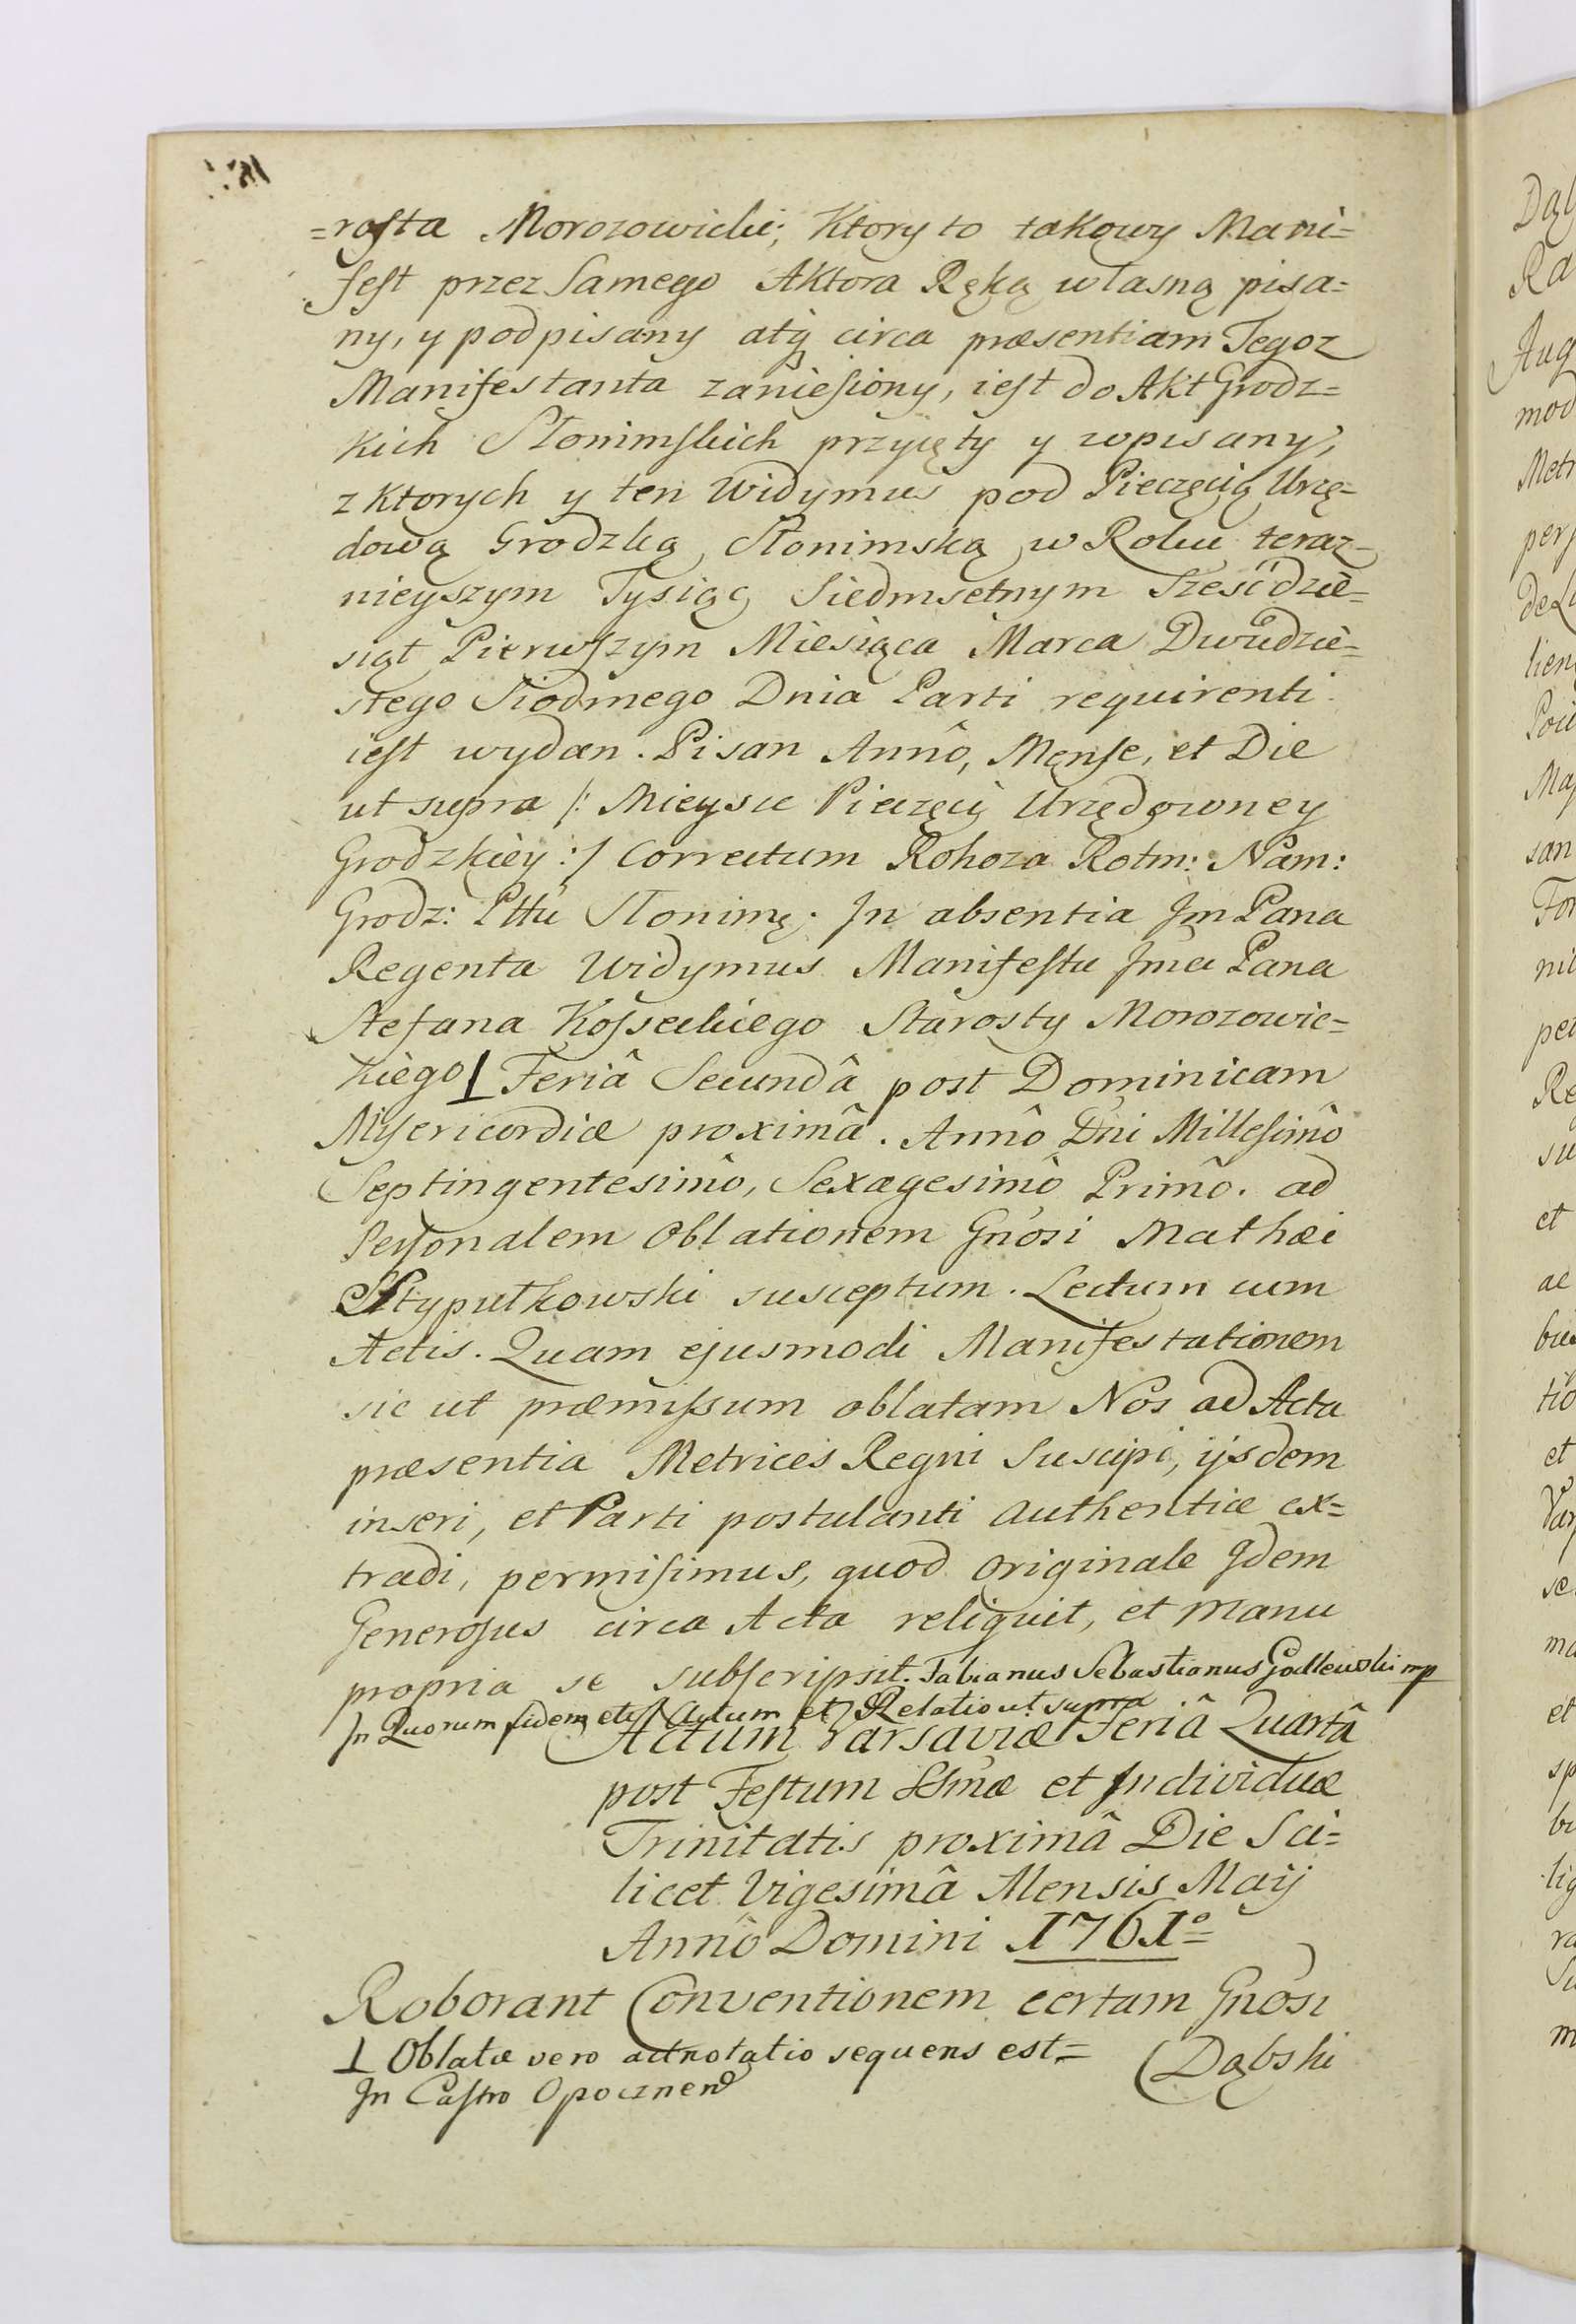 =rosta Morozowicki; Ktory to takowy Mani=
fest przez Samego Aktora Ręką własną pisa=
ny, y podpisany atq́ circa præsentiam Tegoz
Manifestanta zaniesiony, iest do Akt Grodz=
kich Słonimskich przyięty y wpisany,
z Ktorych y ten Widymus pod Pieczęcią Urzę=
dową Grodzką Słonimską w Roku teraz=
nieyszym Tysiąc Siedmsetnym Sześćdzie=
siąt Pierwszym Miesiąca Marca Dwudzie=
stego Siodmego Dnia Parti requirenti
iest wydan. Pisan Annô, Mense, et Die
ut supra /: Mieysce Pieczęci Urzędowney
Grodzkiey :/ Correctum Rohoza Rotm: Nam:
Grodz: Pttu Słonimẹ; In absentia Jm Pana
Regenta Widymus Manifestu Jmci Pana
Stefana Kosseckiego Starosty Morozowic=
kiego ⊥ Feriâ Secundâ post Dominicam
Misericordiæ proximâ. Annô Dni Millesimô
Septingentesimô, Sexagesimô Primô. ad
Personalem Oblationem Gnosi Mathæi
Stypułkowski susceptum. Lectum cum
Actis. Quam ejusmodi Manifestationem
sic ut præmissum oblatam Nos ad Acta
præsentia Metrices Regni Suscipi, ijsdem
inseri, et Parti postulanti authentice ex=
tradi, permisimus, quod Originale Idem
Generosus circa Acta reliquit, et manu
propria se subscripsit. Fabianus Sebastianus Godlewski mp
In Quorum fidem etc Actum et Relatio ut supra
Actum Varsaviæ Feriâ Quartâ
post Festum SSmæ et Individuæ
Trinitatis proximâ Die Sci=
licet Vigesimâ Mensis Maij
Annô Domini 1761º=
Roborant Conventionem certam Gnosi
⊥ Oblatæ vero adnotatio sequens est=
(Dąbski
In Castro Opocznen